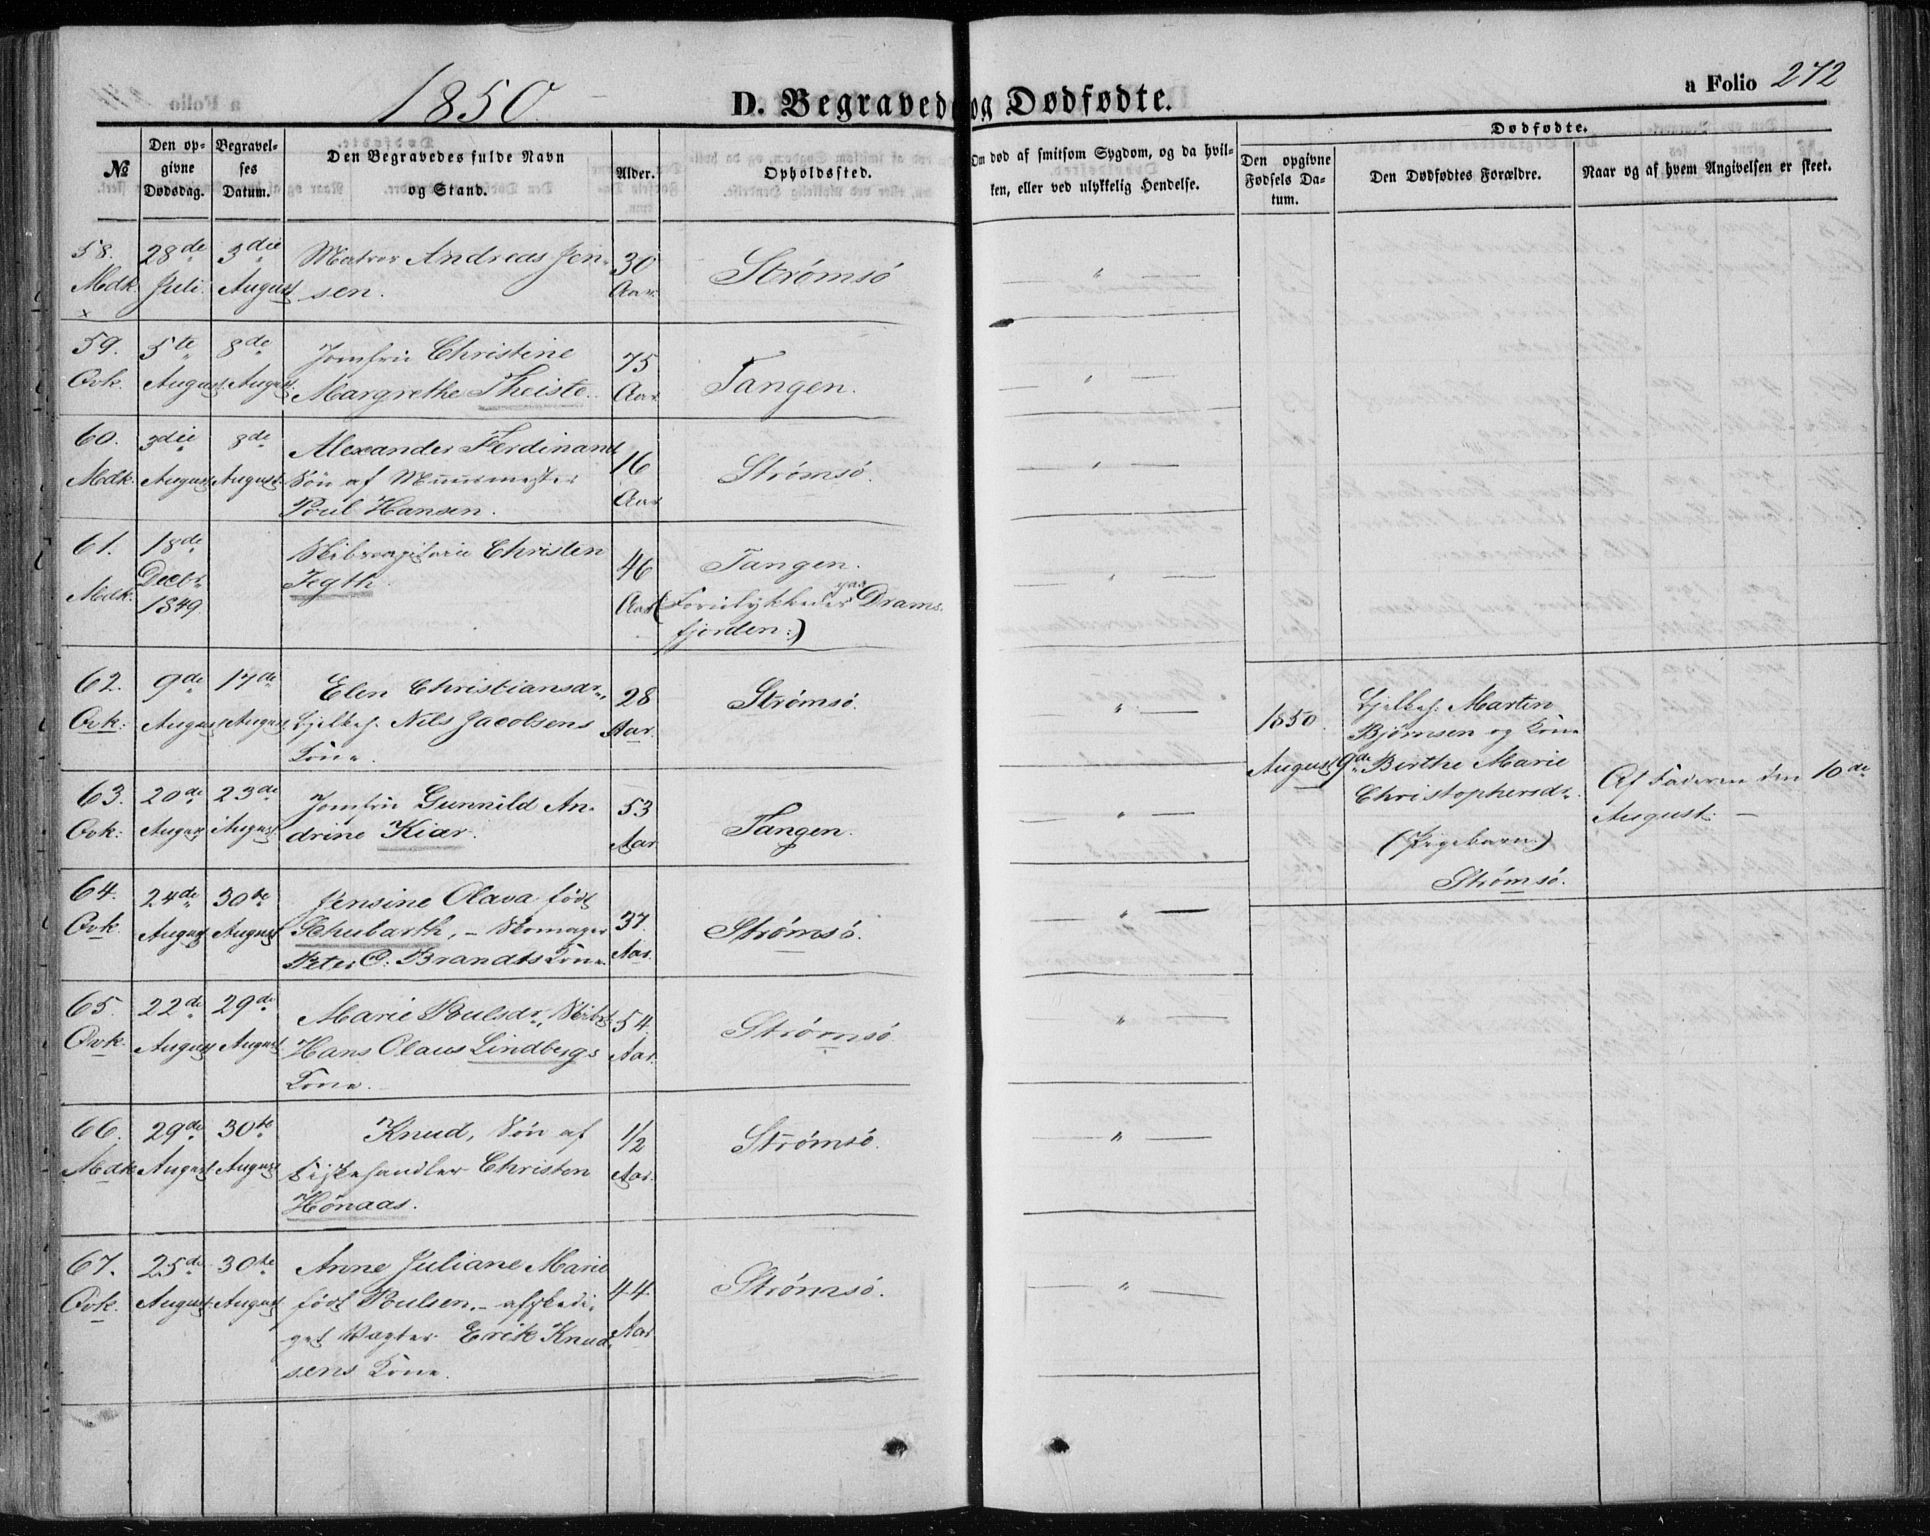 1850
D. Begravede og Dødfødte.
a Folio 272
№
Den opgivne Dødsdag.
Begravelses Datum.
Den Begravedes fulde Navn og Stand.
Alder.
Opholdssted.
Om død af smitsom Sygdom, og da hvilken, eller ved ulykkelig Hendelse.
Dødfødte.
Den opgivne Fødsels Datum.
Den Dødfødtes Forældre.
Naar og af hvem Angivelsen er skeet.
58. 28de 3die Matros Andreas Jen- 30 Strømsö " —
Mdk. Juli. August sen. Aar.
x
59. 5te 8de Jomfru Christine 75 Tangen. — " —
Qvk. August August Margrethe Theiste. Aar
60. 3die 8de Alexander Ferdinand 16 Strømsö. — " —
Mdk. August August Søn af Muurmester Aar
Poul Hansen.
61. 18de Christen 46 Tangen. — " —
Mdk. Decbr. Tegth. Aar (: Forulykkedes paa Drams-
1849 fjorden :)
62. 9de 17de Elen Christiansdr., 28 Strømsö. — " —
Qvk: August August Hjelbeh. Nils Jacobsens Aar.
Kone.
1850. Hjelbeh. Martin
August 9de Bjørnsen og Kone
Birthe Marie
Christophersdr. Af Faderen den 10de
(Pigebarn.) August. —
Strømsö.
63. 20de 23de Jomfru Gunnild An- 53 Tangen. — " —
Qvk: August August drine Kiær. Aar
64. 24de 30te Jensine Olava født 37. Strømsö. " —
Qvk. August August Schubarth, – Skomager Aar.
Peter O. Brandts Kone.
65. 22de 29de Marie Poulsdr., Skibst. 54 Strømsö. "
Qvk. August August Hans Olaus Lindbergs Aar.
Kone.
66. 29de 30te Knud, Søn af 1/2 Strømsö. — " —
Mdk August August Fiskehandler Christen Aar.
Hönaas.
67. 25de 30te Anne Juliane Marie 44. Strømsö. — " —
Qvk. August August født Poulsen. – afskedi- Aar
get Vægter Erik Knud-
sens Kone.